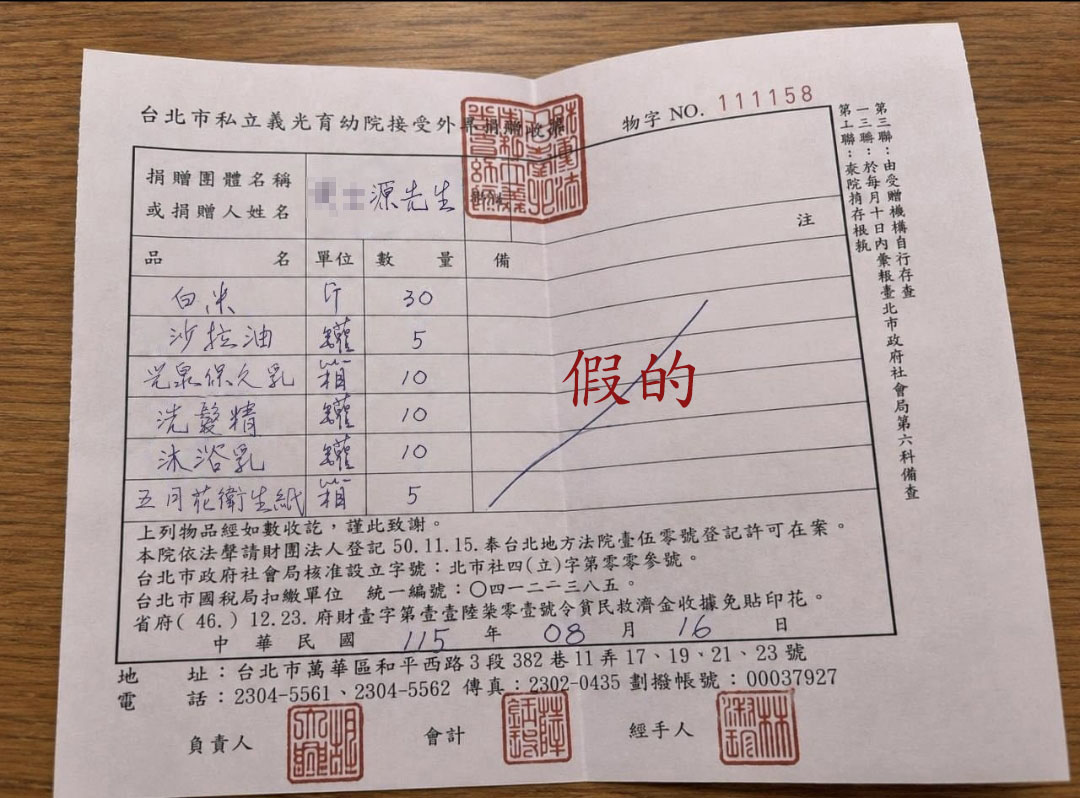 台北市私立義光育幼院接受外界捐贈收據
物字 NO. 111158
捐贈團體名稱
或捐贈人姓名
士源先生
注
品名 單位 數量 備
白米 斤 30
沙拉油 罐 5
光泉保久乳 箱 10
洗髮精 罐 10
沐浴乳 罐 10
五月花衛生紙 箱 5
假的
上列物品經如數收訖，謹此致謝。
本院依法聲請財團法人登記50.11.15.奉台北地方法院壹伍零號登記許可在案。
台北市政府社會局核准設立字號：北市社四(立)字第零零參號。
台北市國稅局扣繳單位 統一編號：〇四一二二三八五。
省府(46.)12.23.府財壹字第壹壹陸柒零壹號令貧民救濟金收據免貼印花。
中華民國 115 年 08 月 16 日
地址：台北市萬華區和平西路3段382巷11弄17、19、21、23號
電話：2304-5561、2304-5562 傳真：2302-0435 劃撥帳號：00037927
負責人
會計
經手人
林
第三聯：由受贈機構自行存查
於每月十日內彙報臺北市政府社會局第六科備查